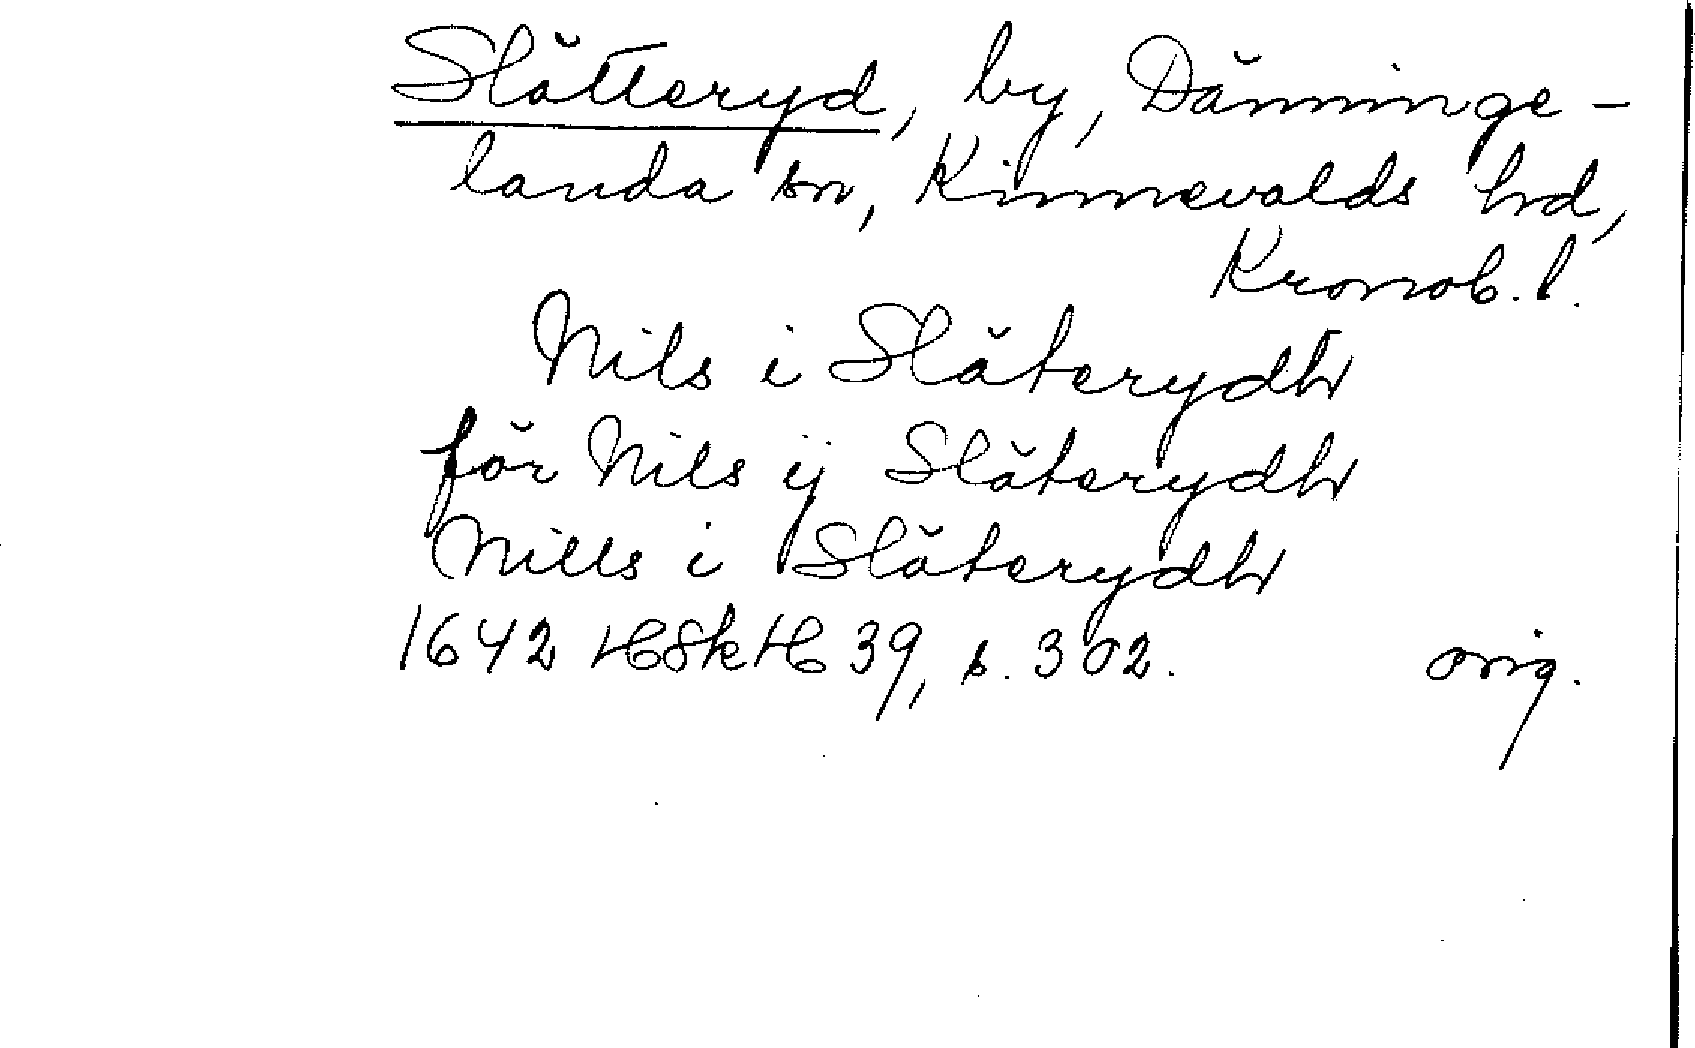 Slätteryd, by, Dänninge-
landa sn, Kinnevalds hd,
Kronob. l.
Nils i Släterydh
för Nils ij Släterydh
Nills i Släterydh
1642 HSkH 39, s. 302. orig.